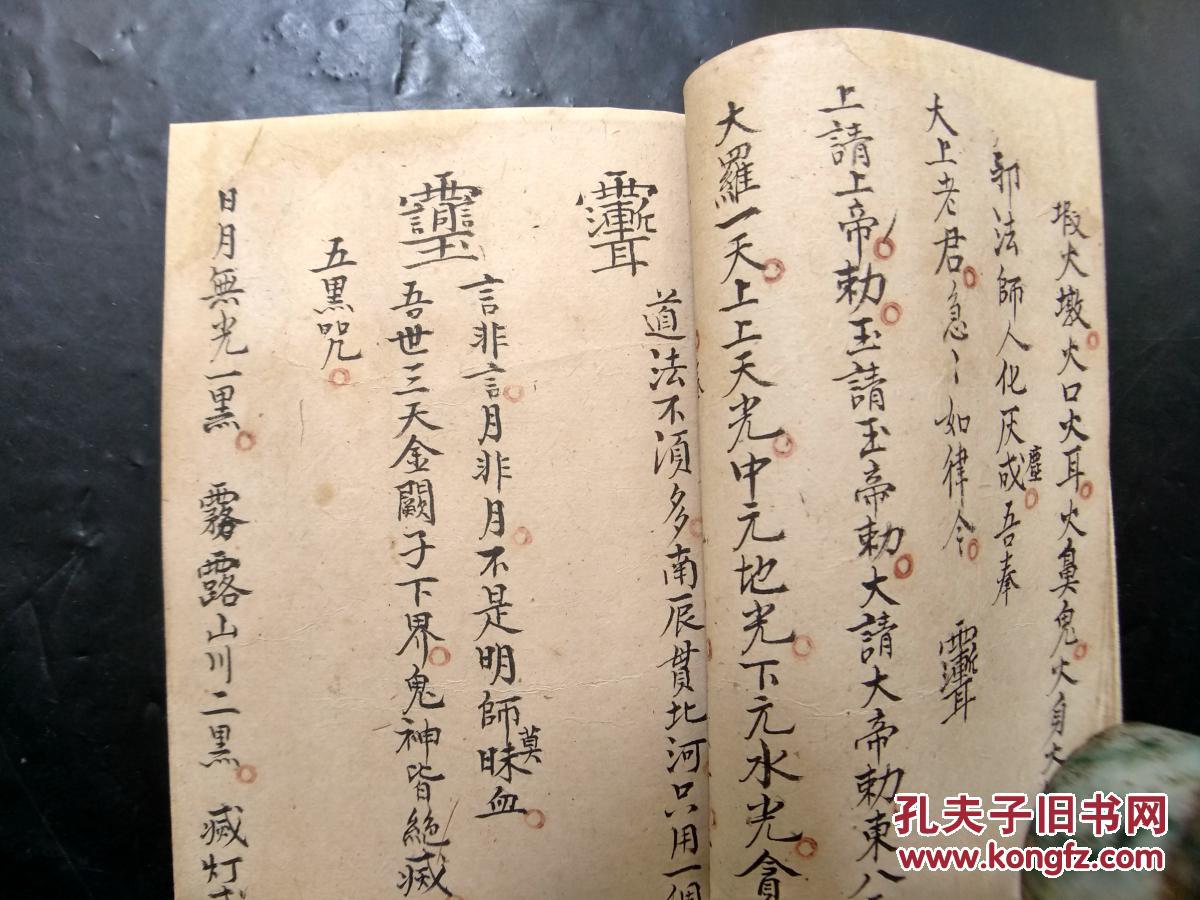 火墩火口火耳火鼻鬼火自大
邪法師人化灰成塵吾奉
大上老君急〻如律令
上請上帝勅玉請玉帝勅大請大帝勅東八
大羅一天上上天光中元地光下元水光貪
道法不須多南辰貫北河只用一個
言非言月非月不是明師莫昧血
吾世三天金闕子下界鬼神皆絕滅
五黑咒
日月無光一黑霧露山川二黑滅灯
孔夫子旧书网
www.kongfz.com